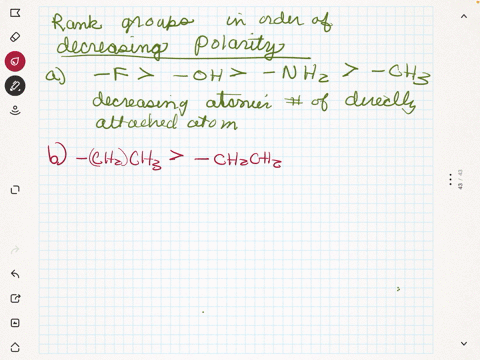 Rank groups in order of
decreasing Polarity
a) -F > -OH > -NH2 > -CH3
decreasing atomic # of directly
attached atom
b) -(CH2)CH3 > -CH2CH2